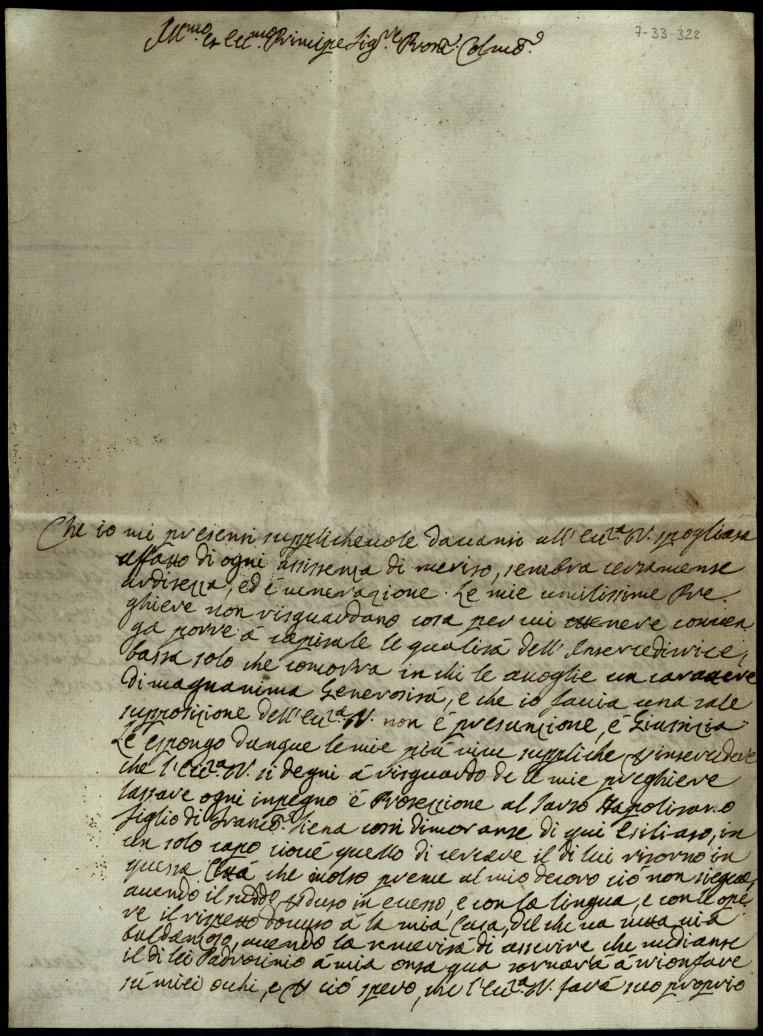 Ill.mo et Ecc.mo Principe Sig.re Pron. Colmo.
7-33-322
Che io mi presenti supplichevole davanti all'Ecc.za V. spogliata
affatto di ogni assistenza di merito, sembra certamente
arditezza, ed è venerazione. Le mie umilissime Pre
ghiere non risguardano cosa per cui convien
ga porre à capitale le qualità dell'Interceditrice;
basta solo che concorra in chi le accoglie un carattere
di magnanima Generosità, e che io faccia una tale
supposizione dell'Ecc.za V. non è presunzione, è Giustizia
Le espongo dunque le mie più vive suppliche
che l'Ecc.za V. si degni à risguardo de le mie preghiere
lassare ogni inpegno è Protezzione al Napolitano
figlio di Franc.o Siena così dimorante di qui Esiliato, in
un solo capo cioè quello di cercare il di lui ritorno in
questa Città che molto preme al mio decoro ciò non siegua,
avendo il sudd.o in e con la lingua, e con le ope
re il rispetto dovuto à la mia Casa, del che va
baldanzoso, avendo la temerità di asserire che mediante
il di lei Padrocinio à mia onta qua tornarà à trionfare
sù miei ochi, e ciò spero, che l'Ecc.za V. farà suo proprio